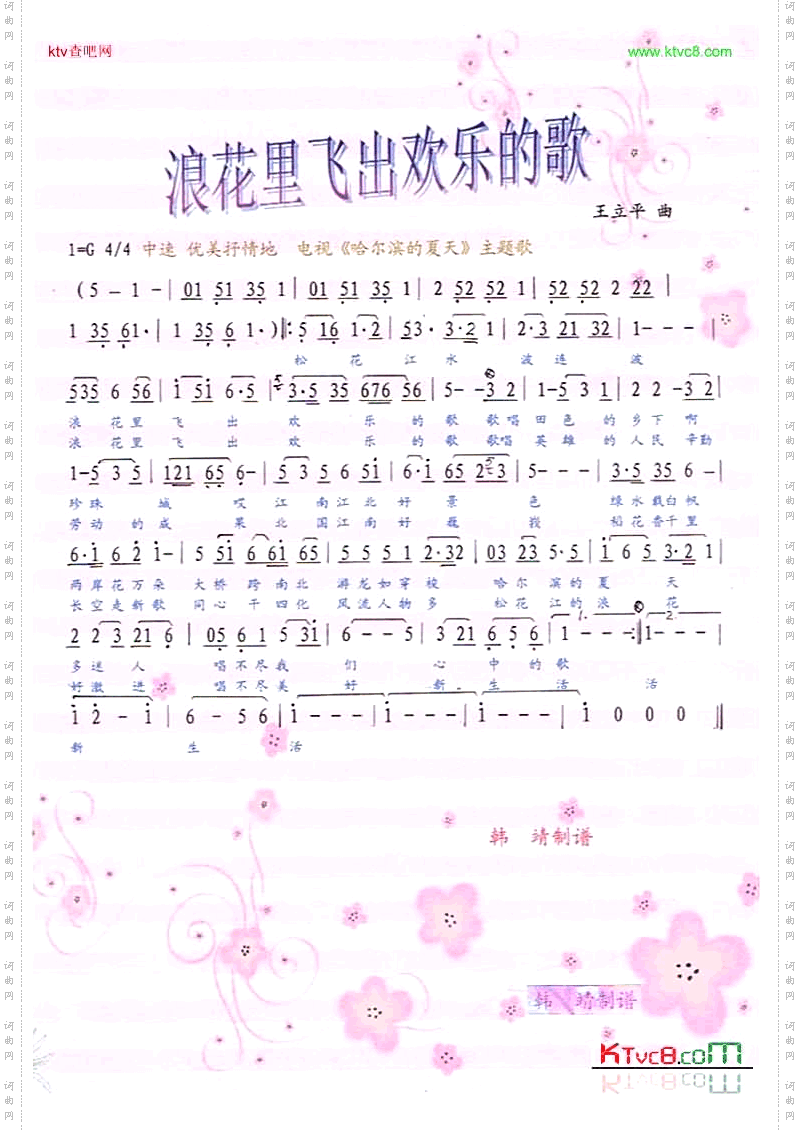 ktv查吧网
www.ktvc8.com
浪花里飞出欢乐的歌
王立平 曲
1=G 4/4 中速 优美抒情地 电视《哈尔滨的夏天》主题歌
(5 — 1 — | 01 51 35 1 | 01 51 35 1 | 2 52 52 1 | 2 52 52 2 22 |
1 35 61· | 1 35 6 1· )‖: 5 16 1·2 | 53· 3·2 1 | 2·3 21 32 | 1 - - - |
松 花 江 水 波 连 波
535 6 56 | 1 51 6·5 | 3·5 35 676 56 | 5 - -3 2 | 1-5 3 1 | 2 2 -3 2 |
浪 花 里 飞 出 欢 乐 的 歌 歌唱 田 色 的 乡 下 啊
浪 花 里 飞 出 欢 乐 的 歌 歌唱 英 雄 的 人 民 辛勤
1-5 3 5 | 121 65 6- | 5 3 5 6 51 | 6·1 65 2 3 | 5 - - - | 3·5 35 6 - |
珍 珠 城 哎 江 南江 北 好 景 色 绿 水 载白 帆
劳 动 的 成 果 北 国江 南好 巍 我 稻 花 香千 里
6·1 62 1- | 5 51 6 61 65 | 5 5 5 1 2·32 | 03 23 5·5 | 1 6 5 3·2 1 |
两 岸 花 万 朵 大 桥 跨 南北 游 龙 如 穿 梭 哈 尔 滨 的 夏 天
长 空 走 新 歌 同 心 干 四化 风 流 人 物 多 松 花 江 的 浪 花
2 2 3 21 6 | 05 6 1 5 31 | 6 - - 5 | 3 21 6 5 6 | 1. 1 - - - :‖ 2. 1 - - - |
多 迷 人 唱 不 尽 我 们 心 中 的 歌
好 激 进 唱 不 尽 美 好 新 生 活 活
1 2 - 1 | 6 - 5 6 | 1 - - - | 1 - - - | 1 - - - | 1 0 0 0 ‖
新 生 活
韩 靖制谱
韩 靖制谱
KTvc8.com
词曲网